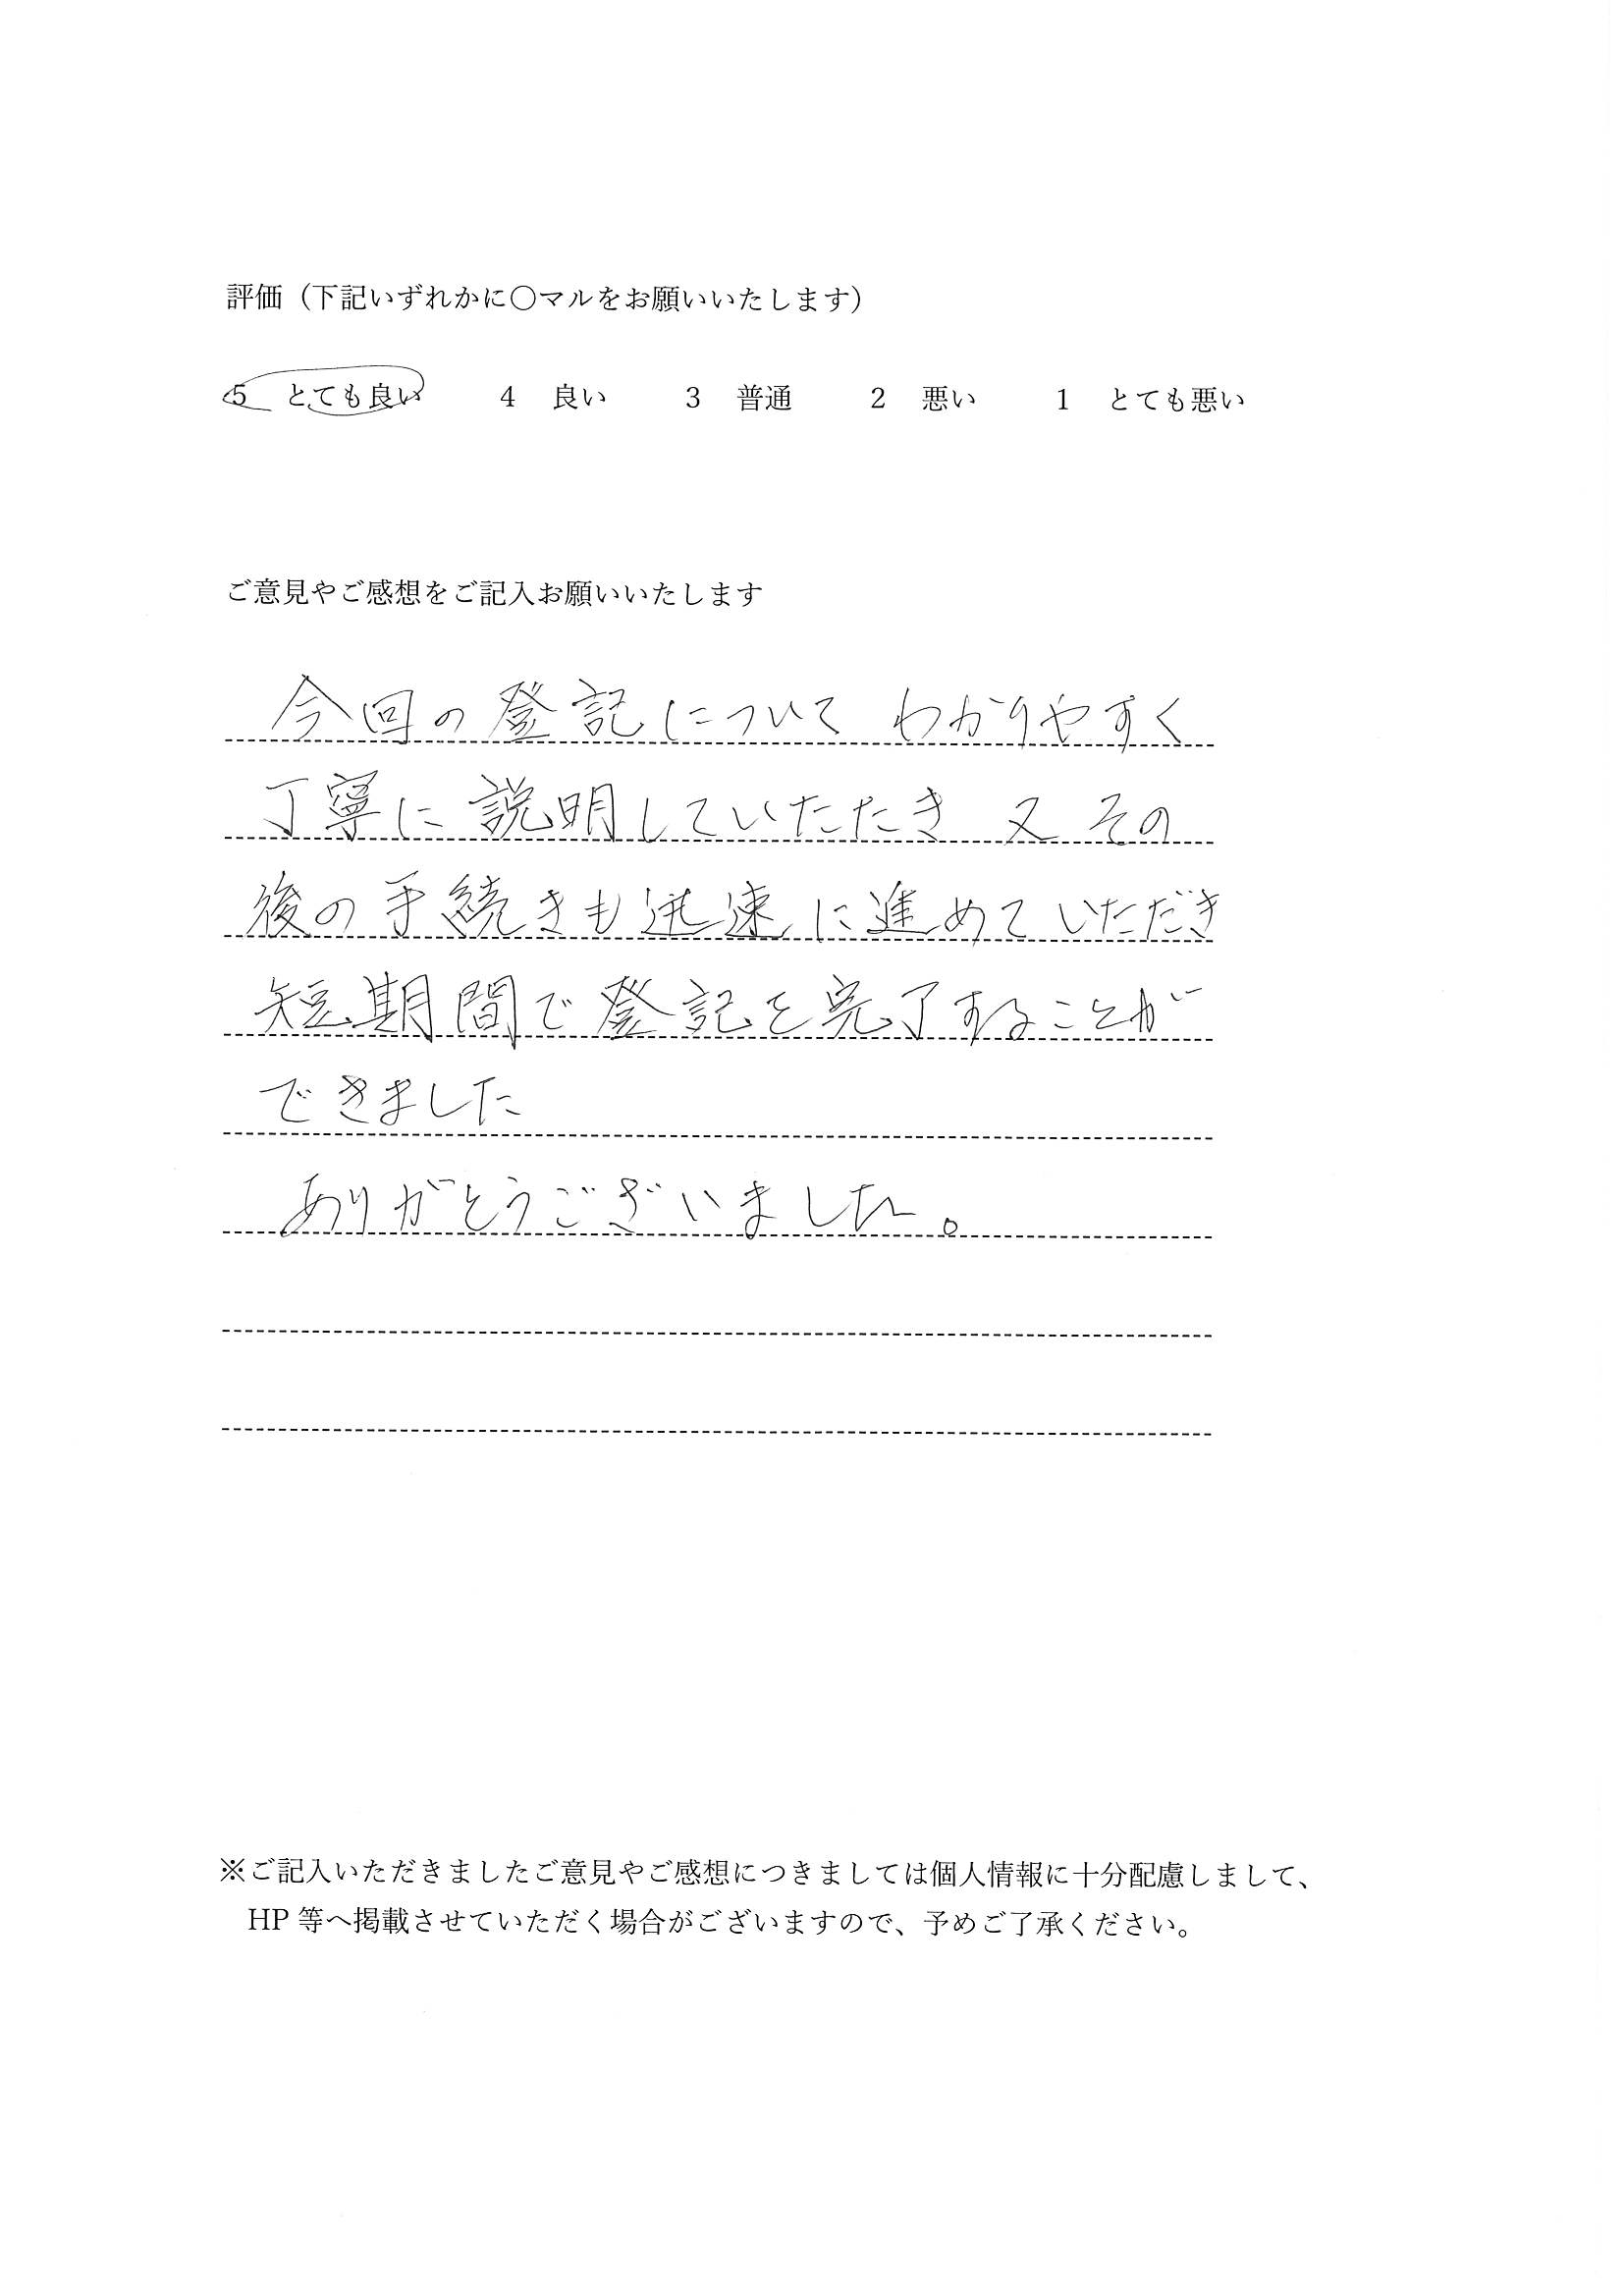 評価（下記いずれかに〇マルをお願いいたします）
5　とても良い　　4　良い　　3　普通　　2　悪い　　1　とても悪い
ご意見やご感想をご記入お願いいたします
今回の登記について わかりやすく
丁寧に説明していたたき 又 その
後の手続きも迅速に進めていただき
短期間で登記を完了することが
できました
ありがとうございました。
※ご記入いただきましたご意見やご感想につきましては個人情報に十分配慮しまして、
HP 等へ掲載させていただく場合がございますので、予めご了承ください。